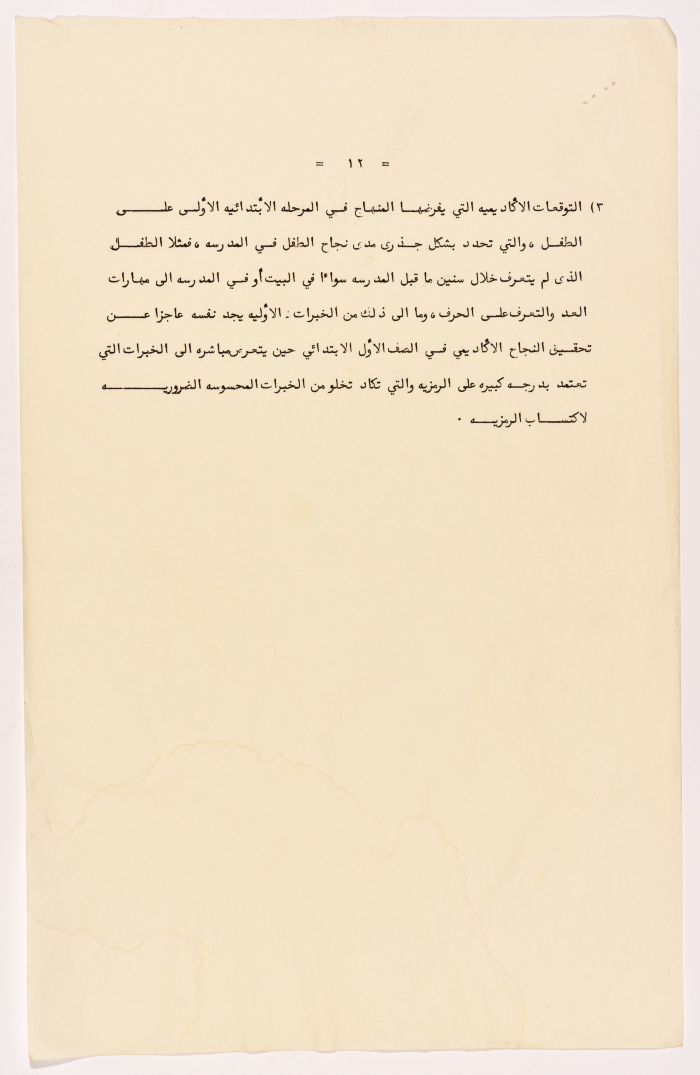 = ١٢ =
٣) التوقعات الأكاديميه التي يفرضها المنهاج في المرحله الأبتدائيه الأولى على
الطفل ، والتي تحدد بشكل جذرى مدى نجاح الطفل في المدرسه ، فمثلا الطفل
الذى لم يتعرف خلال سنين ما قبل المدرسه سواءا في البيت أو في المدرسه الى مهارات
العد والتعرف على الحرف ، وما الى ذلك من الخبرات الأوليه يجد نفسه عاجزا عن
تحقيق النجاح الاكاديمي في الصف الأول الابتدائي حين يتعرض مباشره الى الخبرات التي
تعتمد بدرجه كبيره على الرمزيه والتي تكاد تخلو من الخبرات المحسوسه الضروريه
لاكتساب الرمزيه .